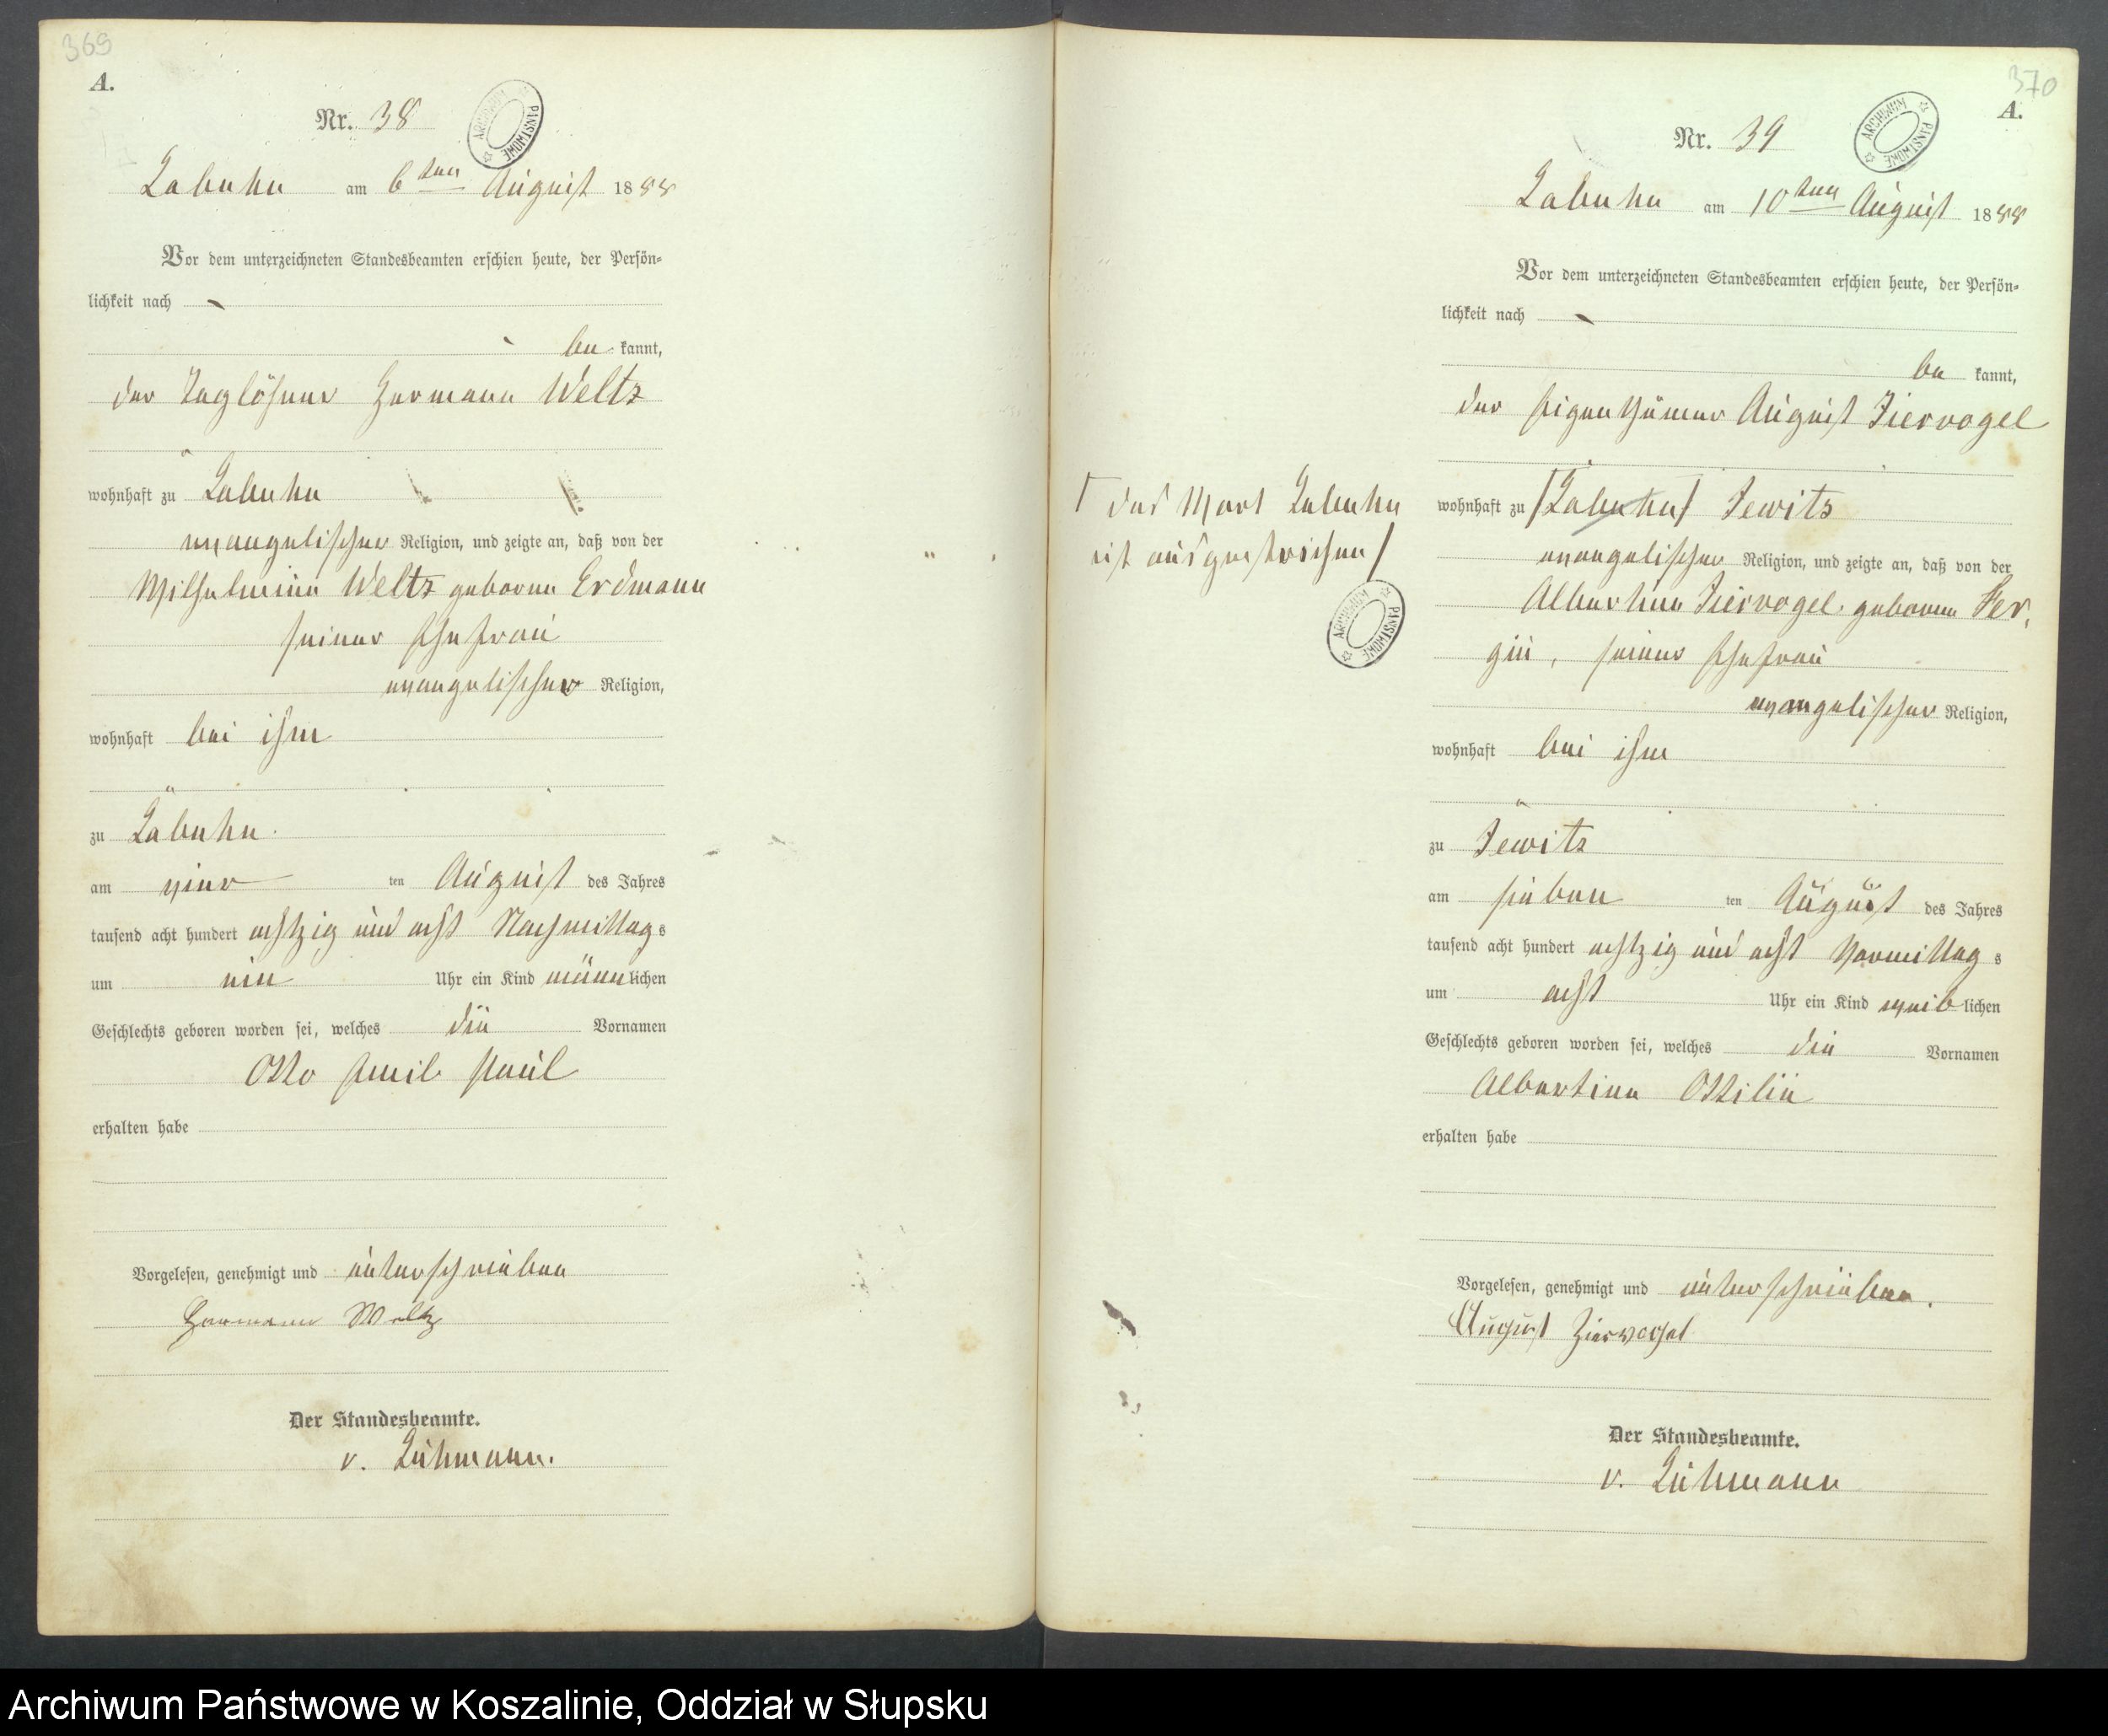 369
A.
Nr. 38
ARCHIWUM PAŃSTWOWE
Labuhn am 6ten August 1888
Vor dem unterzeichneten Standesbeamten erschien heute, der Persön-
lichkeit nach
be kannt,
der Taglöhner Hermann Weltz
wohnhaft zu Labuhn
evangelischer Religion, und zeigte an, daß von der
Wilhelmine Weltz geborne Erdmann
seiner Ehefrau
evangelischer Religion,
wohnhaft bei ihm
zu Labuhn.
am vier ten August des Jahres
tausend acht hundert achtzig und acht Nachmittags
um ein Uhr ein Kind männlichen
Geschlechts geboren worden sei, welches die Vornamen
Otto Emil Paul
erhalten habe
Vorgelesen, genehmigt und unterschrieben
Hermann Weltz
Der Standesbeamte.
v. Lühmann.
370
A.
Nr. 39
ARCHIWUM PAŃSTWOWE
Labuhn am 10ten August 1888
Vor dem unterzeichneten Standesbeamten erschien heute, der Persön-
lichkeit nach
be kannt,
der Eigenthümer August Ziervogel
wohnhaft zu /Labuhn/ Jewitz
evangelischer Religion, und zeigte an, daß von der
Albertine Ziervogel geborne Fer,
gin, seiner Ehefrau
evangelischer Religion,
wohnhaft bei ihm
zu Jewitz
am sieben ten August des Jahres
tausend acht hundert achtzig und acht Vormittags
um acht Uhr ein Kind weiblichen
Geschlechts geboren worden sei, welches die Vornamen
Albertine Ottilie
erhalten habe
Vorgelesen, genehmigt und unterschrieben.
August Ziervogel
Der Standesbeamte.
v. Lühmann
das Wort Labuhn
ist ausgestrichen/
ARCHIWUM PAŃSTWOWE
Archiwum Państwowe w Koszalinie, Oddział w Słupsku